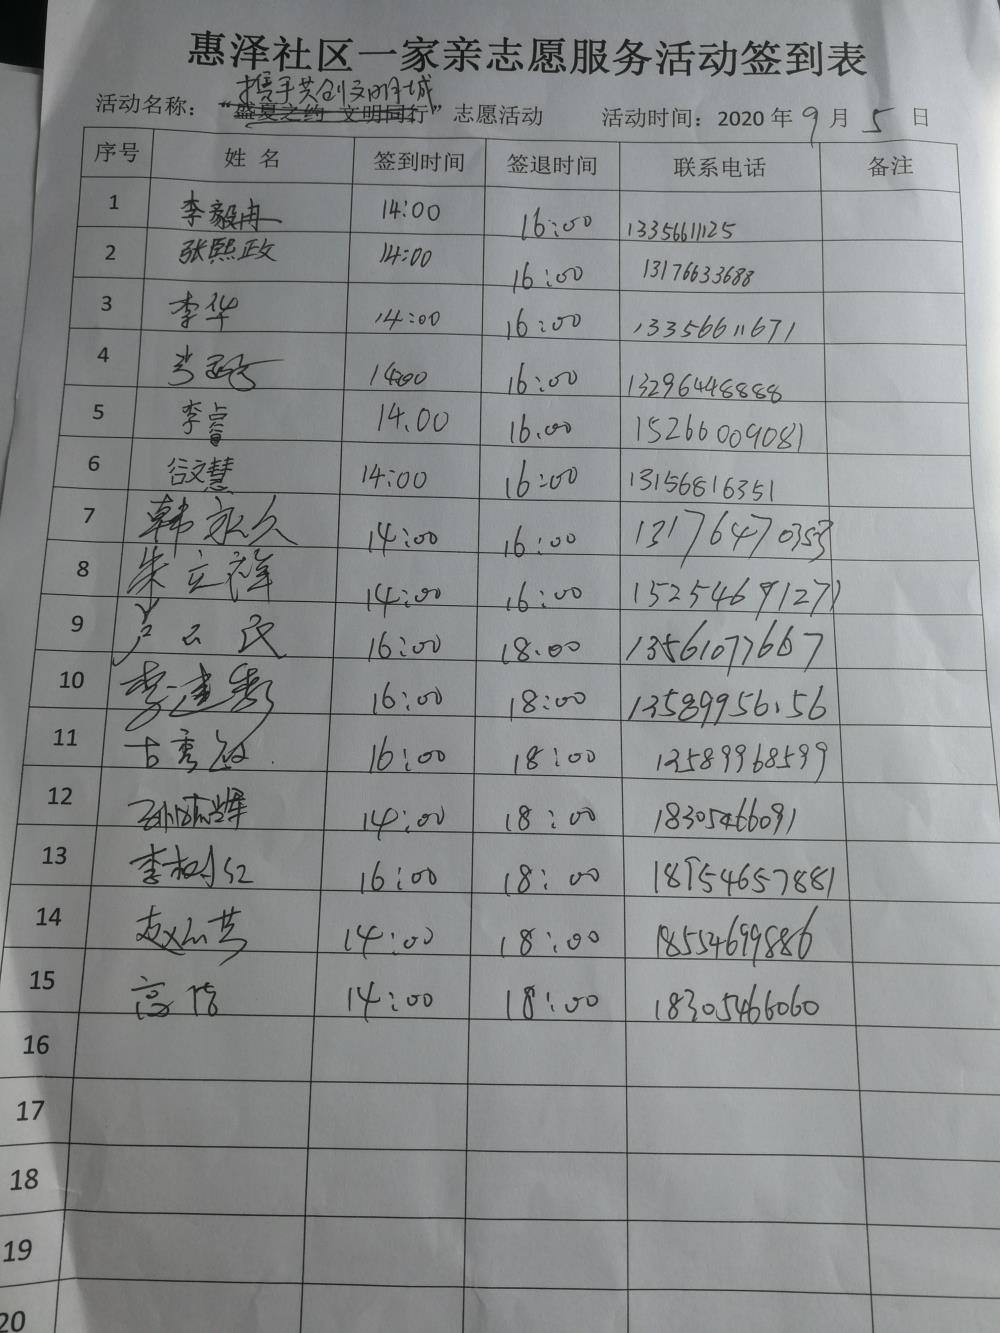 惠泽社区一家亲志愿服务活动签到表
携手共创文明城
活动名称：“盛夏之约 文明同行”志愿活动 活动时间：2020 年 9 月 5 日
序号 姓名 签到时间 签退时间 联系电话 备注
1 李毅冉 14:00 16:00 13356611125
2 张熙政 14:00 16:00 13176633688
3 李华 14:00 16:00 13356611671
4 14:00 16:00 13296448888
5 李睿 14.00 16.00 15266009081
6 谷文慧 14:00 16:00 13156816351
7 韩永久 14:00 16:00 13176470353
8 朱立祥 14:00 16:00 15254691271
9 芦云民 16:00 18.00 13561077667
10 李建秀 16:00 18:00 13589956156
11 古秀 16:00 18:00 13589968599
12 孙 辉 14:00 18:00 18305466091
13 李树仁 16:00 18:00 18954657881
14 赵 英 14:00 18:00 18554699886
15 高 14:00 18:00 18305466060
16
17
18
19
20